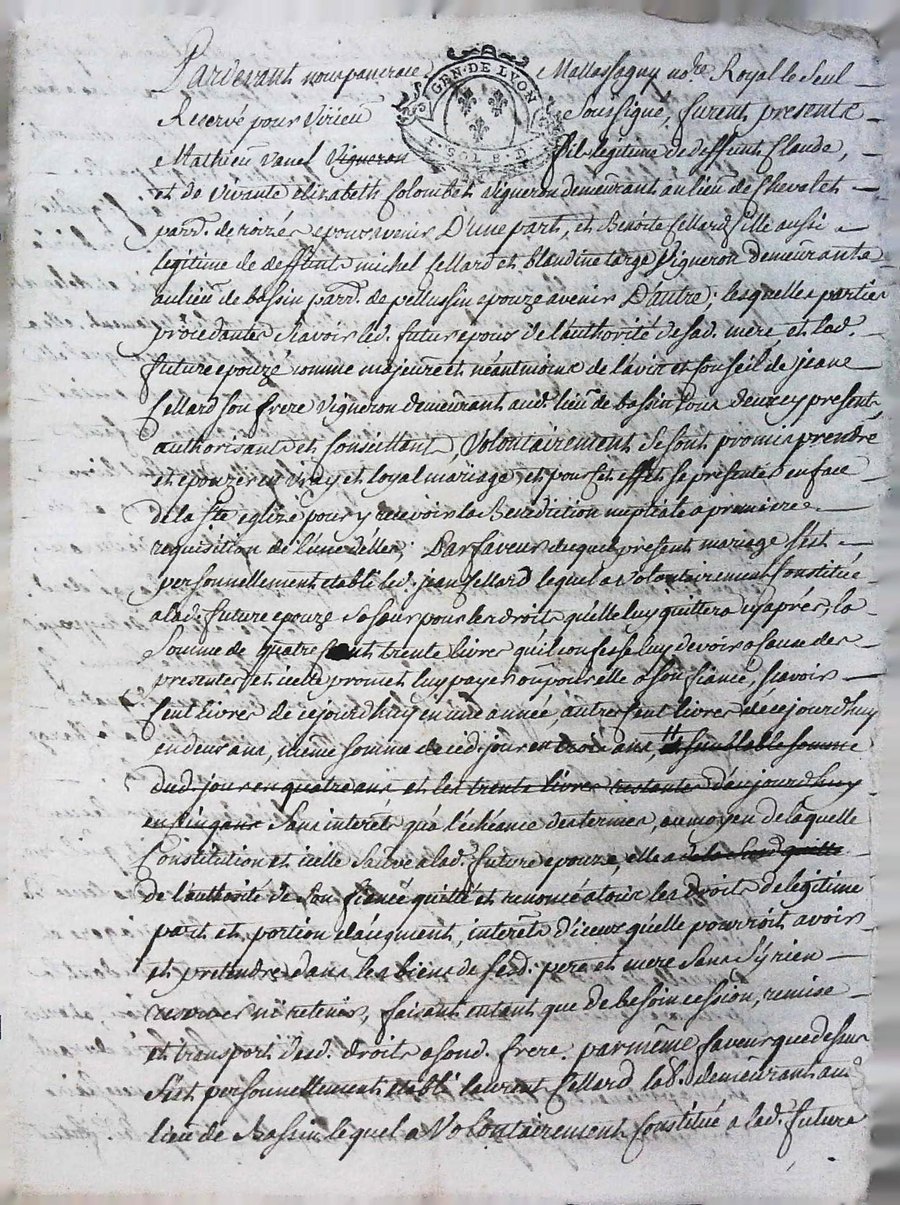 GEN. DE LYON
I. SOL 8. D.
Pardevant nous pancrace Mallassagny no.re Royal le seul
Reservé pour Virieu soussigné, furent presents
Mathieu vanel vigneron fil legitime de deffunt Claude,
et de vivante elizabeth Colombet vigneron demeurant au lieu de Chevalet
parr. de roizés epoux avenir D'une part, et Benoite Cellard fille aussi
legitime de deffunts michel Cellard et blandine targe vigneron demeurante
au lieu de bassin parr. de pellussin epouze avenir D'autre; lesquelles parties
procedantes sçavoir led. futur epoux de l'authorité de sad. mere, et lad.
future epouze comme majeure et néantmoins de l'avis et conseil de jean
Cellard son frere vigneron demeurant aud. lieu de bassin tous deux cy present
authorisant et conseillant, volontairement se sont promis prendre
et epouzer en vray et loyal mariage, et pour cet effet se presenter en face
de la Ste eglize pour y recevoir la Benediction nuptiale a premiere
requisition de l'une d'elles; Par faveur duquel present mariage s'est
personnellement etabli led. jean Cellard lequel a volontairement Constitué
a lad. future epouze sa sœur pour les droits qu'elle luy quittera cy aprés, la
somme de quatre cent trente livres qu'il confesse luy devoir a cause des
presentes et icelle promet luy payer ou pour elle a son fiancé, sçavoir
Cent livres de ce jourdhuy en une année, autres cent livres de ce jourdhuy
en deux ans, même somme de ced. jour en trois ans, et semblable somme
dud. jour en quatre ans et les trente livres restantes d'aujourdhuy
en cinq ans sans interêts qu'a l'échéance des termes, au moyen de laquelle
Constitution et icelle sauve a lad. future epouze, elle a
de l'authorité de son fiancé quitté et renoncé a tous les droits de legitime
part et portion d'augment, interêts d'iceux qu'elle pourroit avoir
et pretendre dans les biens de sesd. pere et mere sans s'y rien
reserver ni retenir, faisant entant que de besoin cession, remise
et transport desd. droits a sond. frere. par même faveur que dessus
s'est personnellement etabli laurent Cellard lab. demeurant aud.
lieu de Bassin lequel a Volontairement Constitué a lad. future